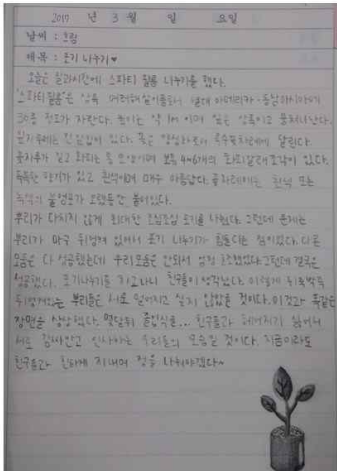 2017 년 3 월 일 요일
날씨 : 흐림
제목 : 포기 나누기♥
오늘은 실과시간에 스파티 필름 나누기를 했다.
"스파티필름"은 상록 여러해살이풀로 열대 아메리카·동남아시아에서
30종 정도가 자란다. 높이는 약 1m 이며 잎은 상록이고 뭉쳐나난다.
잎자루에는 있다. 꽃은 양성화로서 육수꽃차례에 달린다.
꽃자루가 길고 화피는 모양이며 보통 4~6개의 화피갈래조각이 있다.
독특한 향기가 있고 흰색이며 매우 아름답다. 꽃차례에는 흰색 또는
녹색의 불염포가 있다.
뿌리가 다치지 않게 최대한 조심조심 포기를 나눴다. 그런데 문제는
뿌리가 마구 뒤엉켜 있어서 포기 나누기가 힘들다는 점이었다. 다른
모둠은 다 성공했는데 우리모둠은 안되서 그런데 결국은
성공했다. 포기나누기를 하고나니 친구들이 생각났다. 이렇게 뒤죽박죽
뒤엉켜있는 뿌리들은 서로 떨어지고 싶지 않았을 것이다. 이것과 똑같은
장면을 상상했다. 몇달뒤 졸업식을... 친구들과 헤어지기 싫어서
서로 감싸안고 인사하는 우리들의 모습일 것이다. 지금이라도
친구들과 친하게 지내며 정을 나눠야겠다~